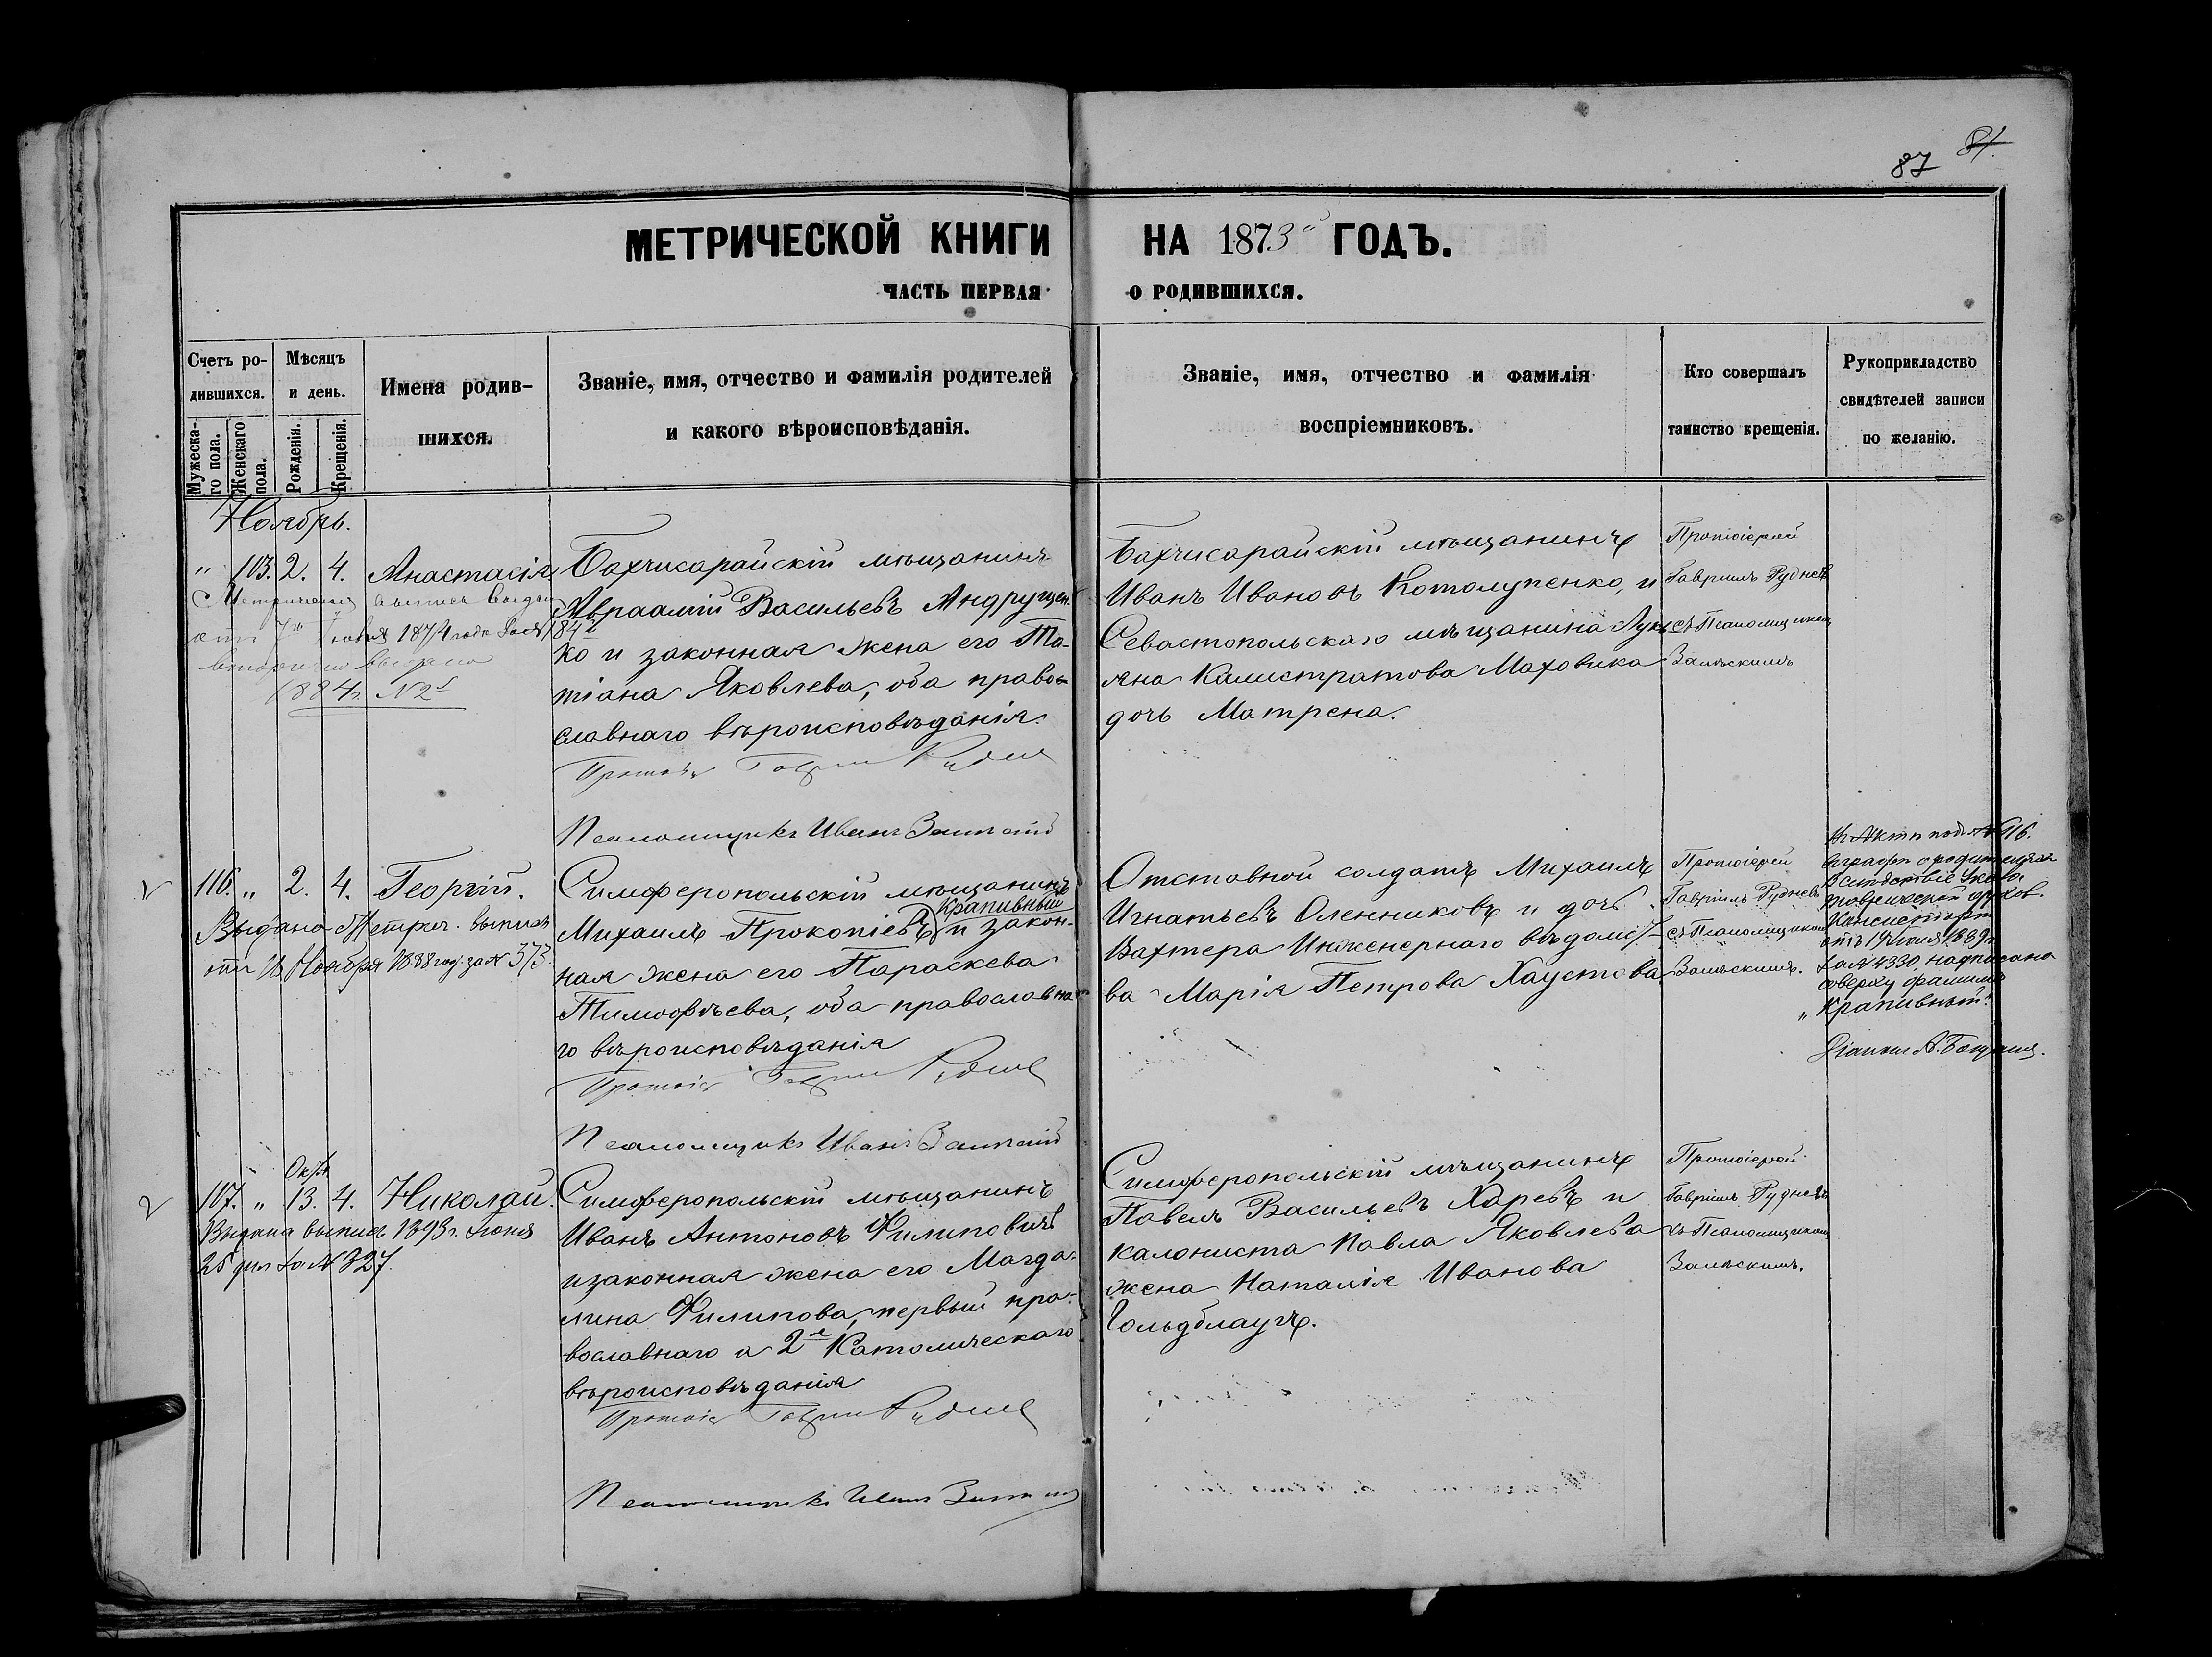 87 81.
МЕТРИЧЕСКОЙ КНИГИ НА 1873й ГОДЪ.
ЧАСТЬ ПЕРВАЯ О РОДИВШИХСЯ.
Счетъ ро-
дившихся.
Мужеска-
го пола.
Женскаго
пола.
Мѣсяцъ
и день.
Рожденія.
Крещенія.
Имена родив-
шихся.
Званіе, имя, отчество и фамилія родителей
и какого вѣроисповѣданія.
Званіе, имя, отчество и фамилія
воспріемниковъ.
Кто совершалъ
таинство крещенія.
Рукоприкладство
свидѣтелей записи
по желанію.
Ноябрь.
" 103. 2. 4. Анастасія
Метрическая выпись выдана
1874 года за № 184
вторично выдана
1884 г. №
Бахчисарайскій мѣщанинъ
Авраамій Васильевъ Андрущен-
ко и законная жена его Та-
тіана Яковлева, оба право-
славнаго вѣроисповѣданія.
Протоіе Гавріи Рудне
Псаломщикъ Иванъ
Бахчисарайскій мѣщанинъ
Иванъ Ивановъ Котолупенко, и
Севастопольскаго мѣщанина Лукі-
яна Калистратова Маховика
дочь Матрена.
Протоіерей
Гавріилъ Рудневъ
съ Псаломщикомъ
116. " 2. 4. Георгій.
Выдана Метрич. выпись
отъ 18 Ноября 1888 год. за № 373.
Симферопольскій мѣщанинъ
Крапивный
Михаилъ Прокопіевъ и закон-
ная жена его Параскева
Тимофѣева, оба православна-
го вѣроисповѣданія
Протоіе Гавріи Рудне
Псаломщикъ Иванъ
Отставной солдатъ Михаилъ
Игнатьевъ Оленниковъ и дочь
Вахтера Инженернаго вѣдомст-
ва Марія Петрова Хаустова.
Протоіерей
Гавріилъ Рудневъ
съ Псаломщикомъ
Въ Актѣ подъ № 116.
въ графѣ о родителяхъ
Вслѣдствіе Указа
Таврической Духов.
Консисторіи
отъ 19 Іюля 1889 г.
за № 4330, надписано
сверху фамилія
„Крапивный".
107. " Окт. 13. 4. Николай.
Выдана выпись 1893 г. Іюня
25 дня за № 327.
Симферопольскій мѣщанинъ
Иванъ Антоновъ Филиповичъ
и законная жена его Магда-
лина Филипова, первый пра-
вославнаго а 2я Католическаго
вѣроисповѣданія
Протоіе Гавріи Рудне
Псаломщикъ Иванъ
Симферопольскій мѣщанинъ
Павелъ Васильевъ Харевъ и
калониста Павла Яковлева
жена Наталія Иванова
Гольдблаухъ.
Протоіерей
Гавріилъ Рудневъ
съ Псаломщикомъ